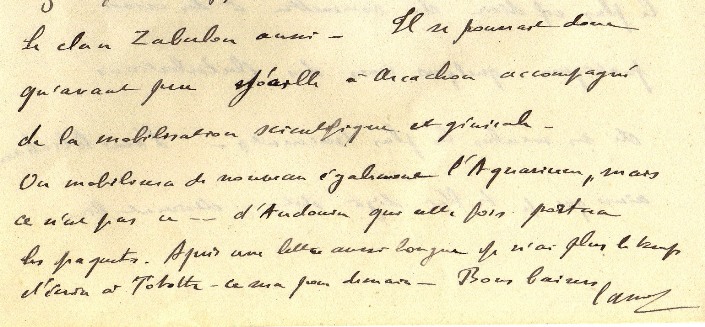 le clan Zabulon aussi – Il se pourrait donc
qu'avant peu j'aille à Arcachon accompagné
de la mobilisation scientifique et générale –
On mobilisera de nouveau également l'Aquarium, mais
ce n'est pas ce -- d'Audouin qui cette fois portera
les paquets. Après une lettre aussi longue je n'ai plus le temps
d'écrire à Totote – ce sera pour demain – Bons baisers